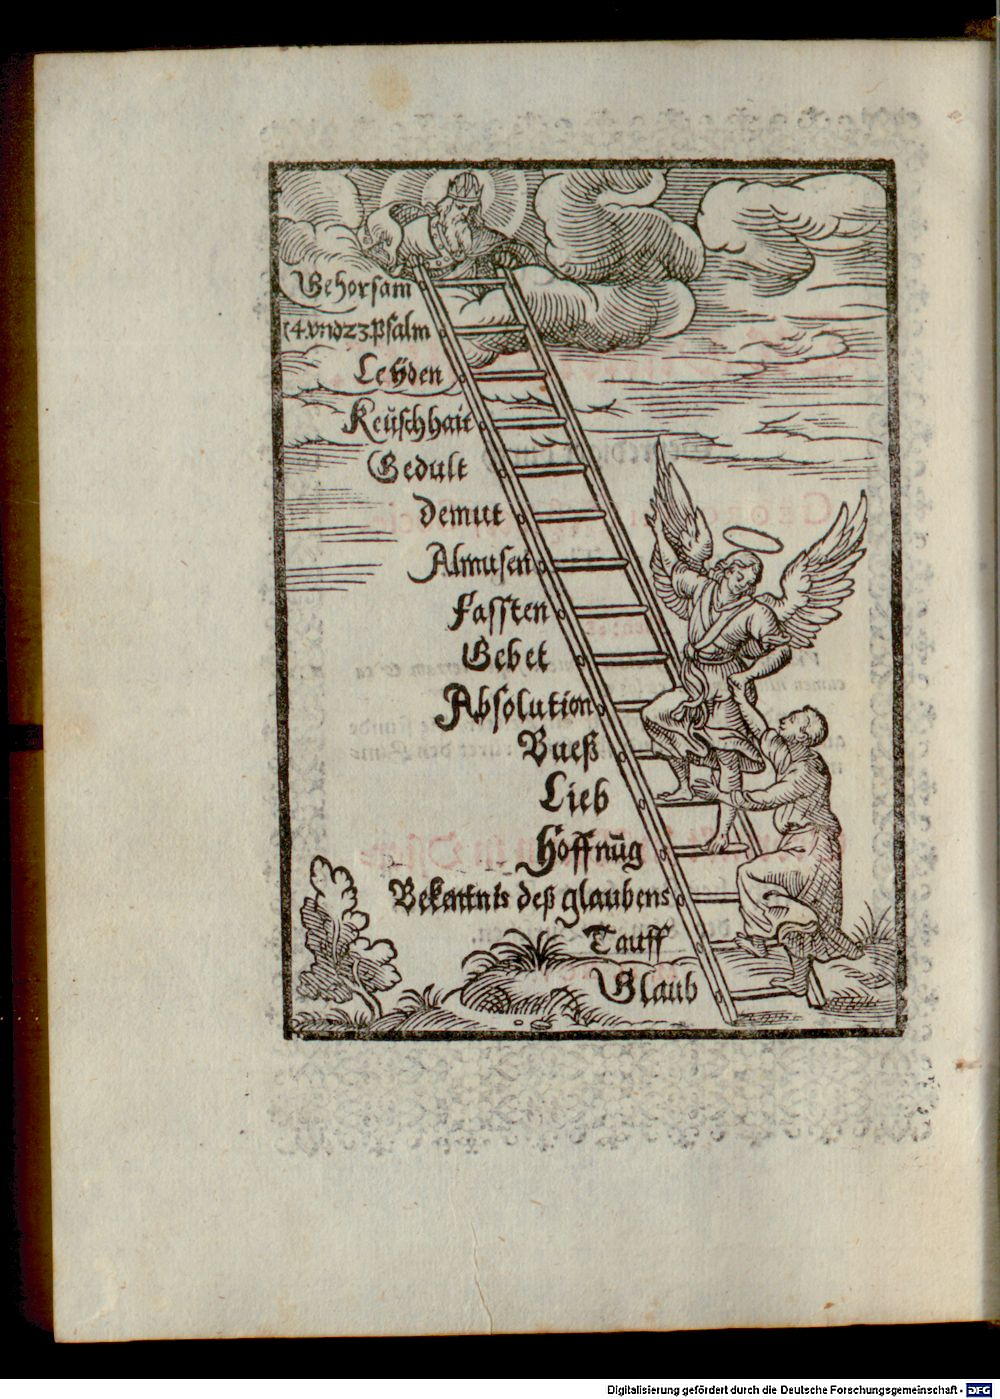 Gehorsam
14.vnd23.Psalm
Leyden
Keüschhait
Gedult
Demut
Almusen
Fassten
Gebet
Absolution
Bueß
Lieb
Hoffnūg
Bekantnis deß glaubens
Tauff
Glaub
Digitalisierung gefördert durch die Deutsche Forschungsgemeinschaft - DFG